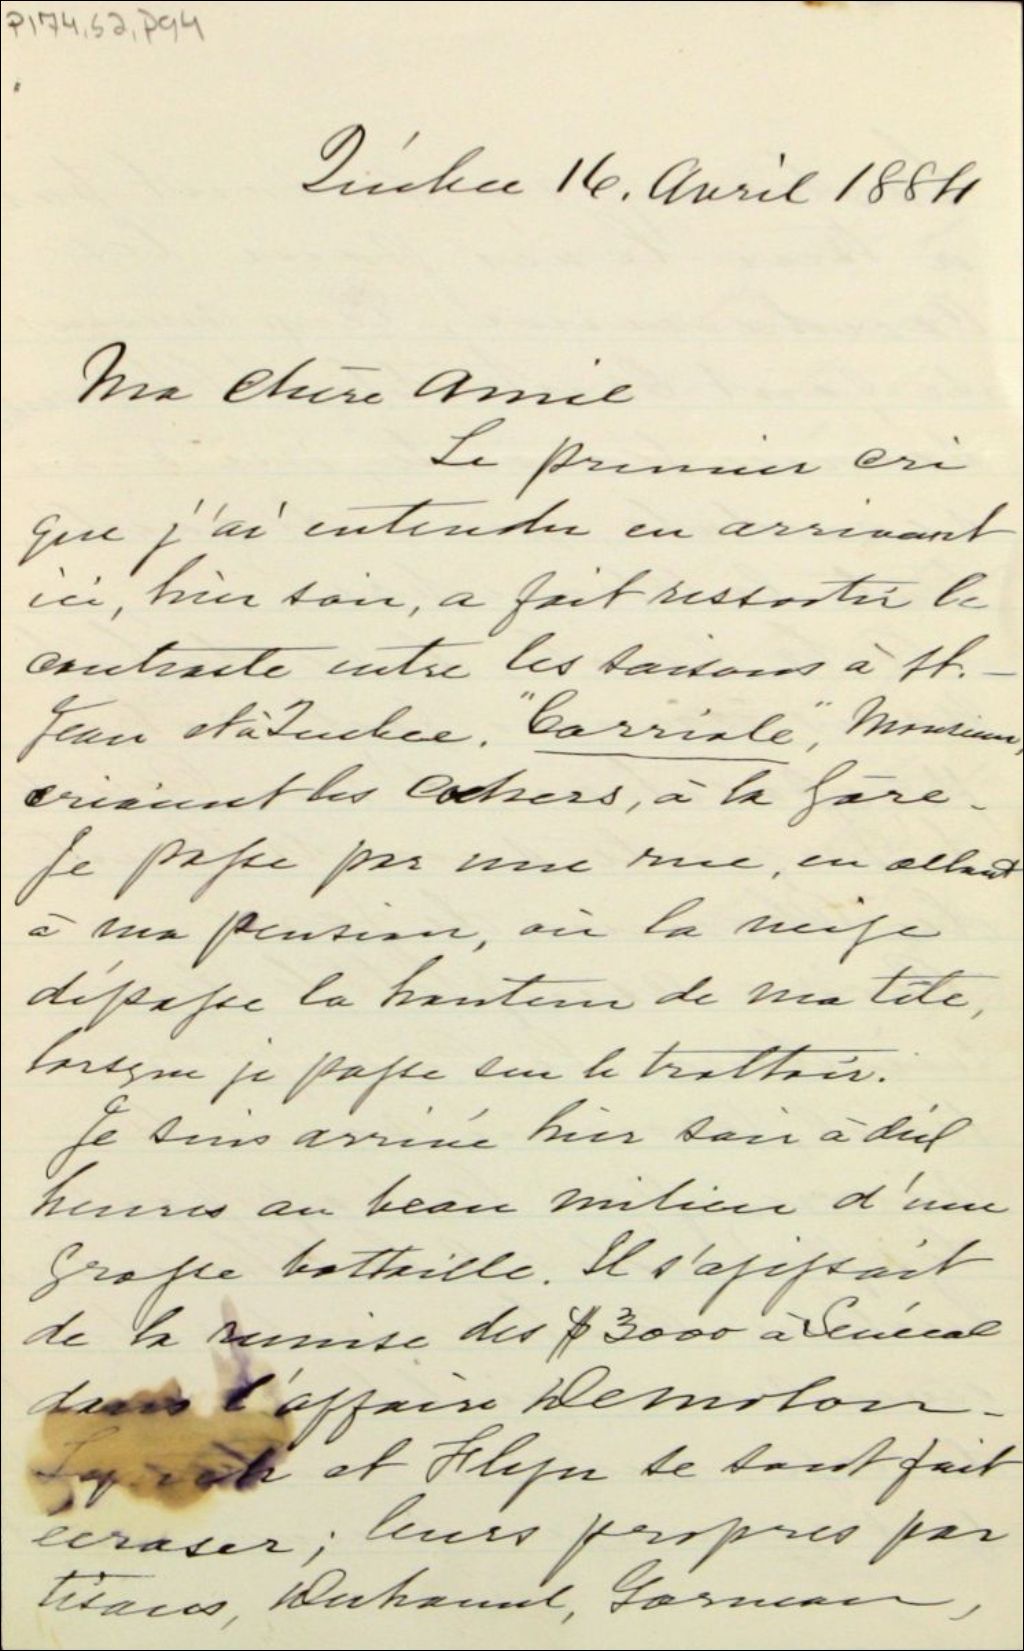 P174,S2,P94
Québec 16. Avril 1884
Ma Chère Amie
Le premier cri
que j'ai entendu en arrivant
ici, hier soir, a fait ressortir le
contraste entre les saisons à St.-
Jean et à Québec. "Carriole", Monsieur,
criaient les Cochers, à la Gare -
Je passe par une rue, en allant
à ma pension, où la neige
dépasse la hauteur de ma tête,
lorsque je passe sur le trottoir.
Je suis arrivé hier soir à dix
heures au beau milieu d'une
grosse battaille. Il s'agissait
de la remise des $3000 à Sénécal
dans l'affaire Demolon -
et Flynn se sont fait
écraser; leurs propres par
tisans, Duhamel, Garneau,